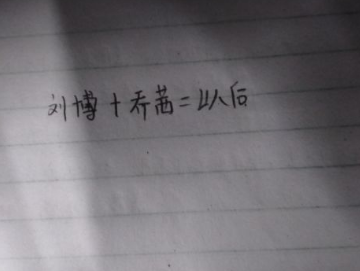 刘博+乔茜=以后